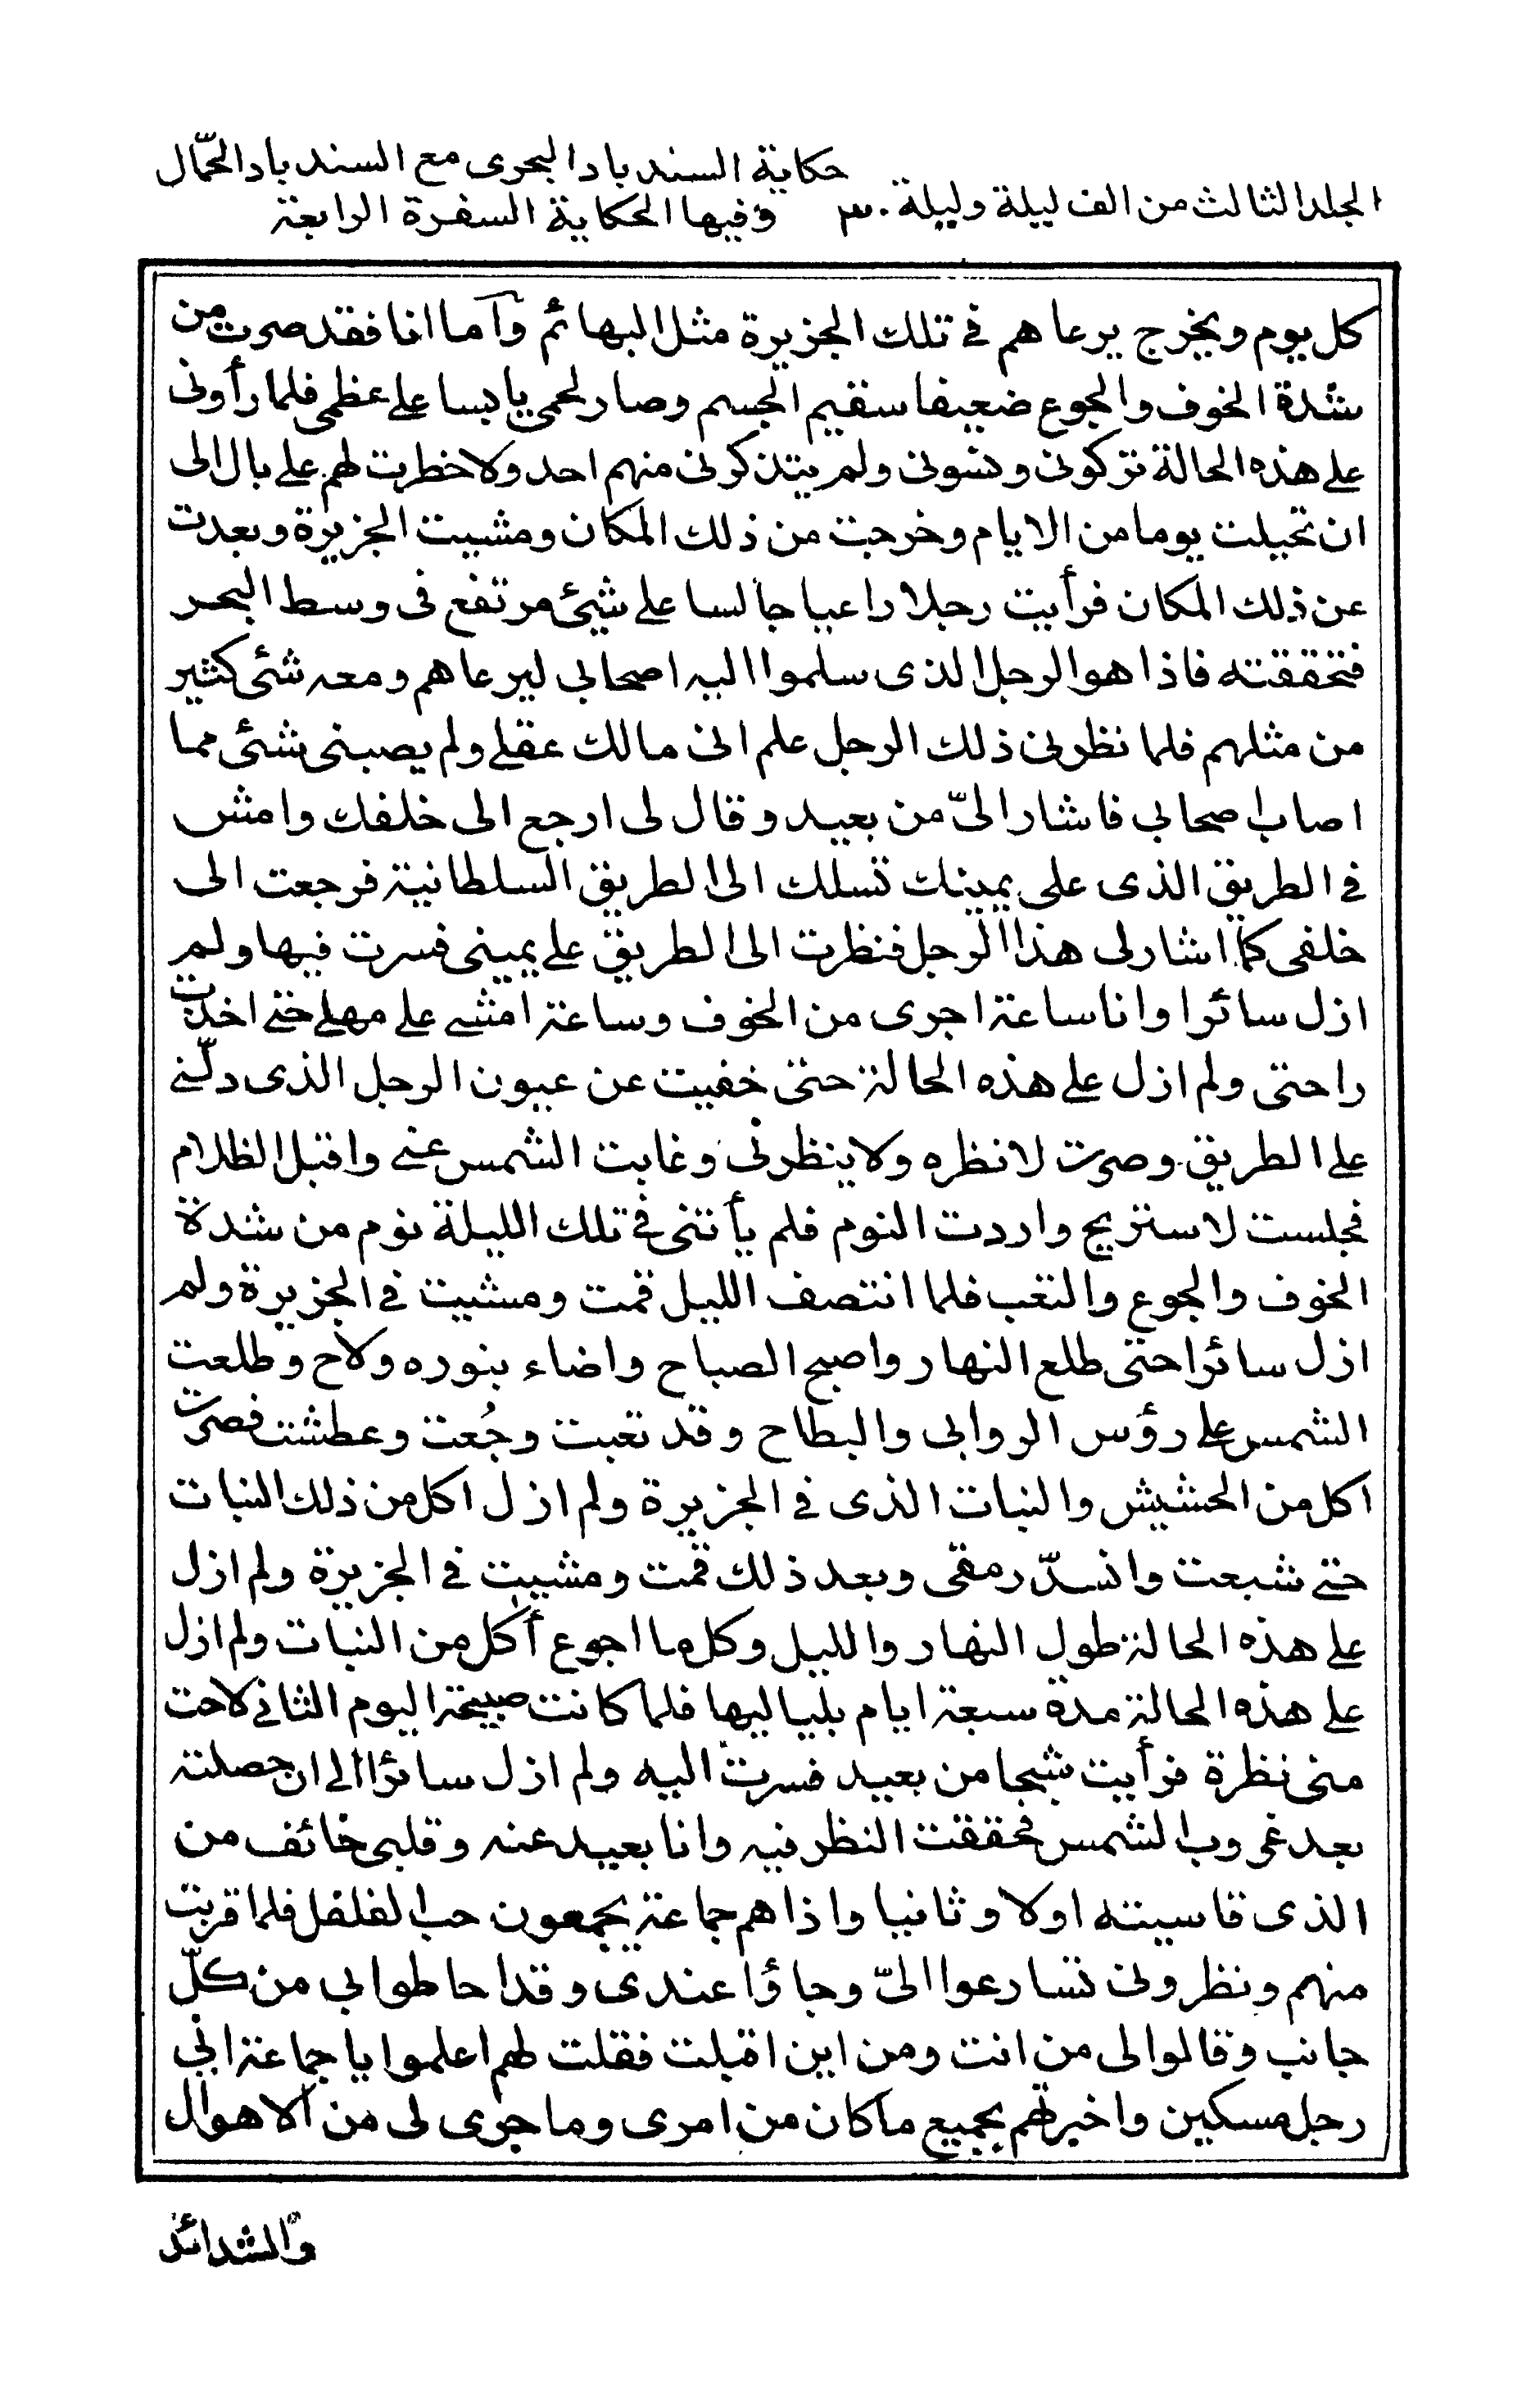 حكاية السندباد البحرى مع السندباد الحمّال
المجلد الثالث من الف ليلة وليلة ٣٠ وفيها الحكاية السفرة الرابعة
كل يوم ويخرج يرعاهم فى تلك الجزيرة مثل البهائم وآما انا فقد صرت من
شدة الخوف والجوع ضعيفا سقيم الجسم وصار لحمى يابسا على عظمى فلما رأونى
على هذه الحالة تركونى ونسونى ولم يتذكرنى منهم احد ولا خطرت لهم على بال الى
ان تحيلت يوما من الايام وخرجت من ذلك المكان ومشيت الجزيرة وبعدت
عن ذلك المكان فرأيت رجلا راعيا جالسا على شيئ مرتفع فى وسط البحر
فتحققته فاذا هو الرجل الذى سلموا اليه اصحابى ليرعاهم ومعه شئى كثير
من مثلهم فلما نظرنى ذلك الرجل علم انى مالك عقلى ولم يصبنى شئى مما
اصاب اصحابى فاشار الىّ من بعيد وقال لى ارجع الى خلفك وامش
فى الطريق الذى على يمينك تسلك الى الطريق السلطانية فرجعت الى
خلفى كما اشار لى هذا الرجل فنظرت الى الطريق على يمينى فسرت فيها ولم
ازل سائرا وانا ساعة اجرى من الخوف وساعة امشى على مهلى حتى اخذت
راحتى ولم ازل على هذه الحالة حتى خفيت عن عيون الرجل الذى دلّنى
على الطريق وصرت لا نظره ولا ينظرنى وغابت الشمس عنى واقبل الظلام
فجلست لاستريح واردت النوم فلم يأتنى فى تلك الليلة نوم من شدة
الخوف والجوع والتعب فلما انتصف الليل قمت ومشيت فى الجزيرة ولم
ازل سائرا حتى طلع النهار واصبح الصباح واضاء بنوره ولاح وطلعت
الشمس على رؤس الروابى والبطاح وقد تعبت وجُعت وعطشت فصرت
اكل من الحشيش والنبات الذى فى الجزيرة ولم ازل اكل من ذلك النبات
حتى شبعت وانسدّ رمقى وبعد ذلك قمت ومشيت فى الجزيرة ولم ازل
على هذه الحالة طول النهار والليل وكل ما اجوع أكل من النبات ولم ازل
على هذه الحالة مدة سبعة ايام بلياليها فلما كانت صبيحة اليوم الثانى لاحت
منى نظرة فرأيت شبحا من بعيد فسرت اليه ولم ازل سائرا الى ان حصلته
بعد غروب الشمس فحققت النظر فيه وانا بعيد عنه وقلبى خائف من
الذى قاسيته اولا وثانيا واذا هم جماعة يجمعون حب الفلفل فلما قربت
منهم ونظرونى تسارعوا الىّ وجاؤا عندى وقد احاطوا بى من كلّ
جانب وقالوا لى من انت ومن اين اقبلت فقلت لهم اعلموا يا جماعة انى
رجل مسكين واخبرتهم بجميع ماكان من امرى وما جرى لى من الاهوال
والشدائد